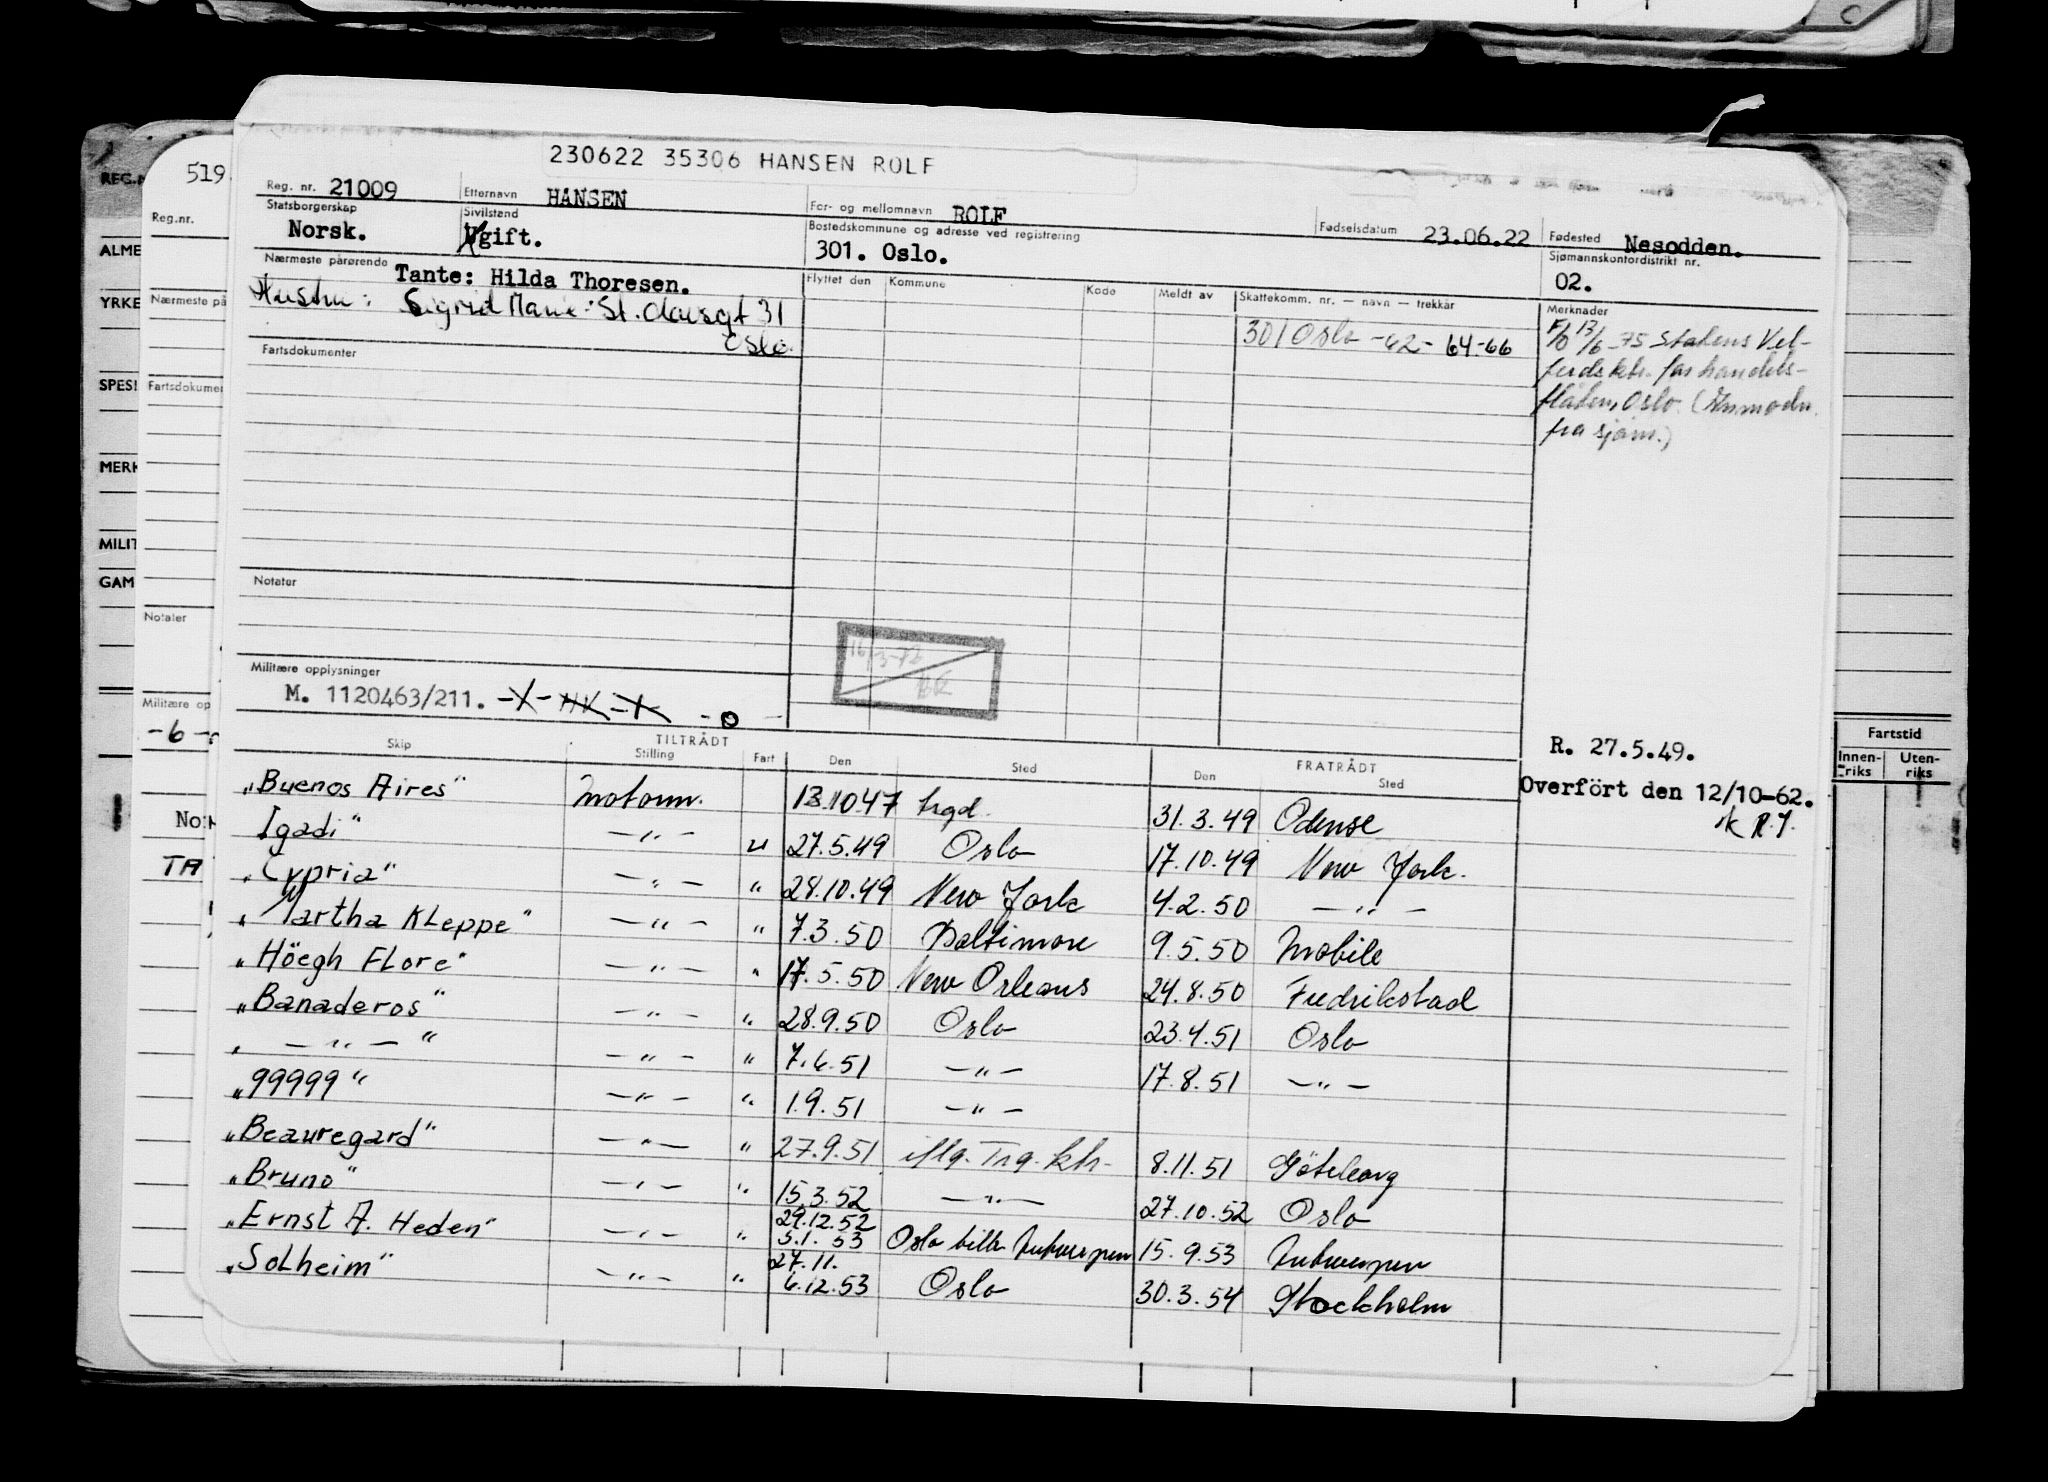 230622 35306 HANSEN ROLF
519
REG.N
Reg. nr. 21009 Etternavn HANSEN For- og mellomnavn ROLF Fødselsdatum 23.06.22 Fødested Nesodden.
Reg.nr.
Statsborgerskap Norsk. Sivilstand Ugift. Bostedskommune og adresse ved registrering 301. Oslo. Sjømannskontordistrikt nr. 02.
ALME
Nærmeste pårørende Tante: Hilda Thoresen. Flyttet den Kommune Kode Meldt av Skattekomm. nr. — navn — trekkår Merknader
YRKE Nærmeste på
Hustru: Sigrid Marie: St. Olavsgt 31
Oslo.
301 Oslo -62- 64-66
F/O 13/6-75 Statens Vel-
ferdsktr. for handels-
flåten, Oslo. (Anmodn.
fra sjøm.)
Fartsdokumenter
SPESI Fartsdokumen
MERK
MILIT
GAM
Notater
Notater
16/3-72
Militære opplysninger
M. 1120463/211. -X- -X- -O-
Militære op
-6-
R. 27.5.49.
Overfört den 12/10-62.
Fartstid
Innen-riks Uten-riks
TILTRÅDT FRATRÅDT
Skip Stilling Fart Den Sted Den Sted
"Buenos Aires" motorm. 13.10.47 trgd. 31.3.49 Odense
Igadi" —"— u 27.5.49 Oslo 17.10.49 New York.
"Cypria" —"— " 28.10.49 New York 4.2.50 —"—
"Martha Kleppe" —"— " 7.3.50 Baltimore 9.5.50 Mobile
"Höegh Flore" —"— " 17.5.50 New Orleans 24.8.50 Fredrikstad
"Banaderos" —"— " 28.9.50 Oslo 23.4.51 Oslo
" —"— " —"— " 7.6.51 —"— 17.8.51 —"—
"99999" —"— " 1.9.51 —"—
"Beauregard" —"— " 27.9.51 iflg. Trg. ktr. 8.11.51 Göteborg
"Bruno" —"— " 15.3.52 —"— 27.10.52 Oslo
"Ernst A. Heden" —"— " 29.12.52 5.1.53 Oslo tiltr. Antwerpen 15.9.53 Antwerpen
"Solheim" —"— " 27.11. 6.12.53 Oslo 30.3.54 Stockholm